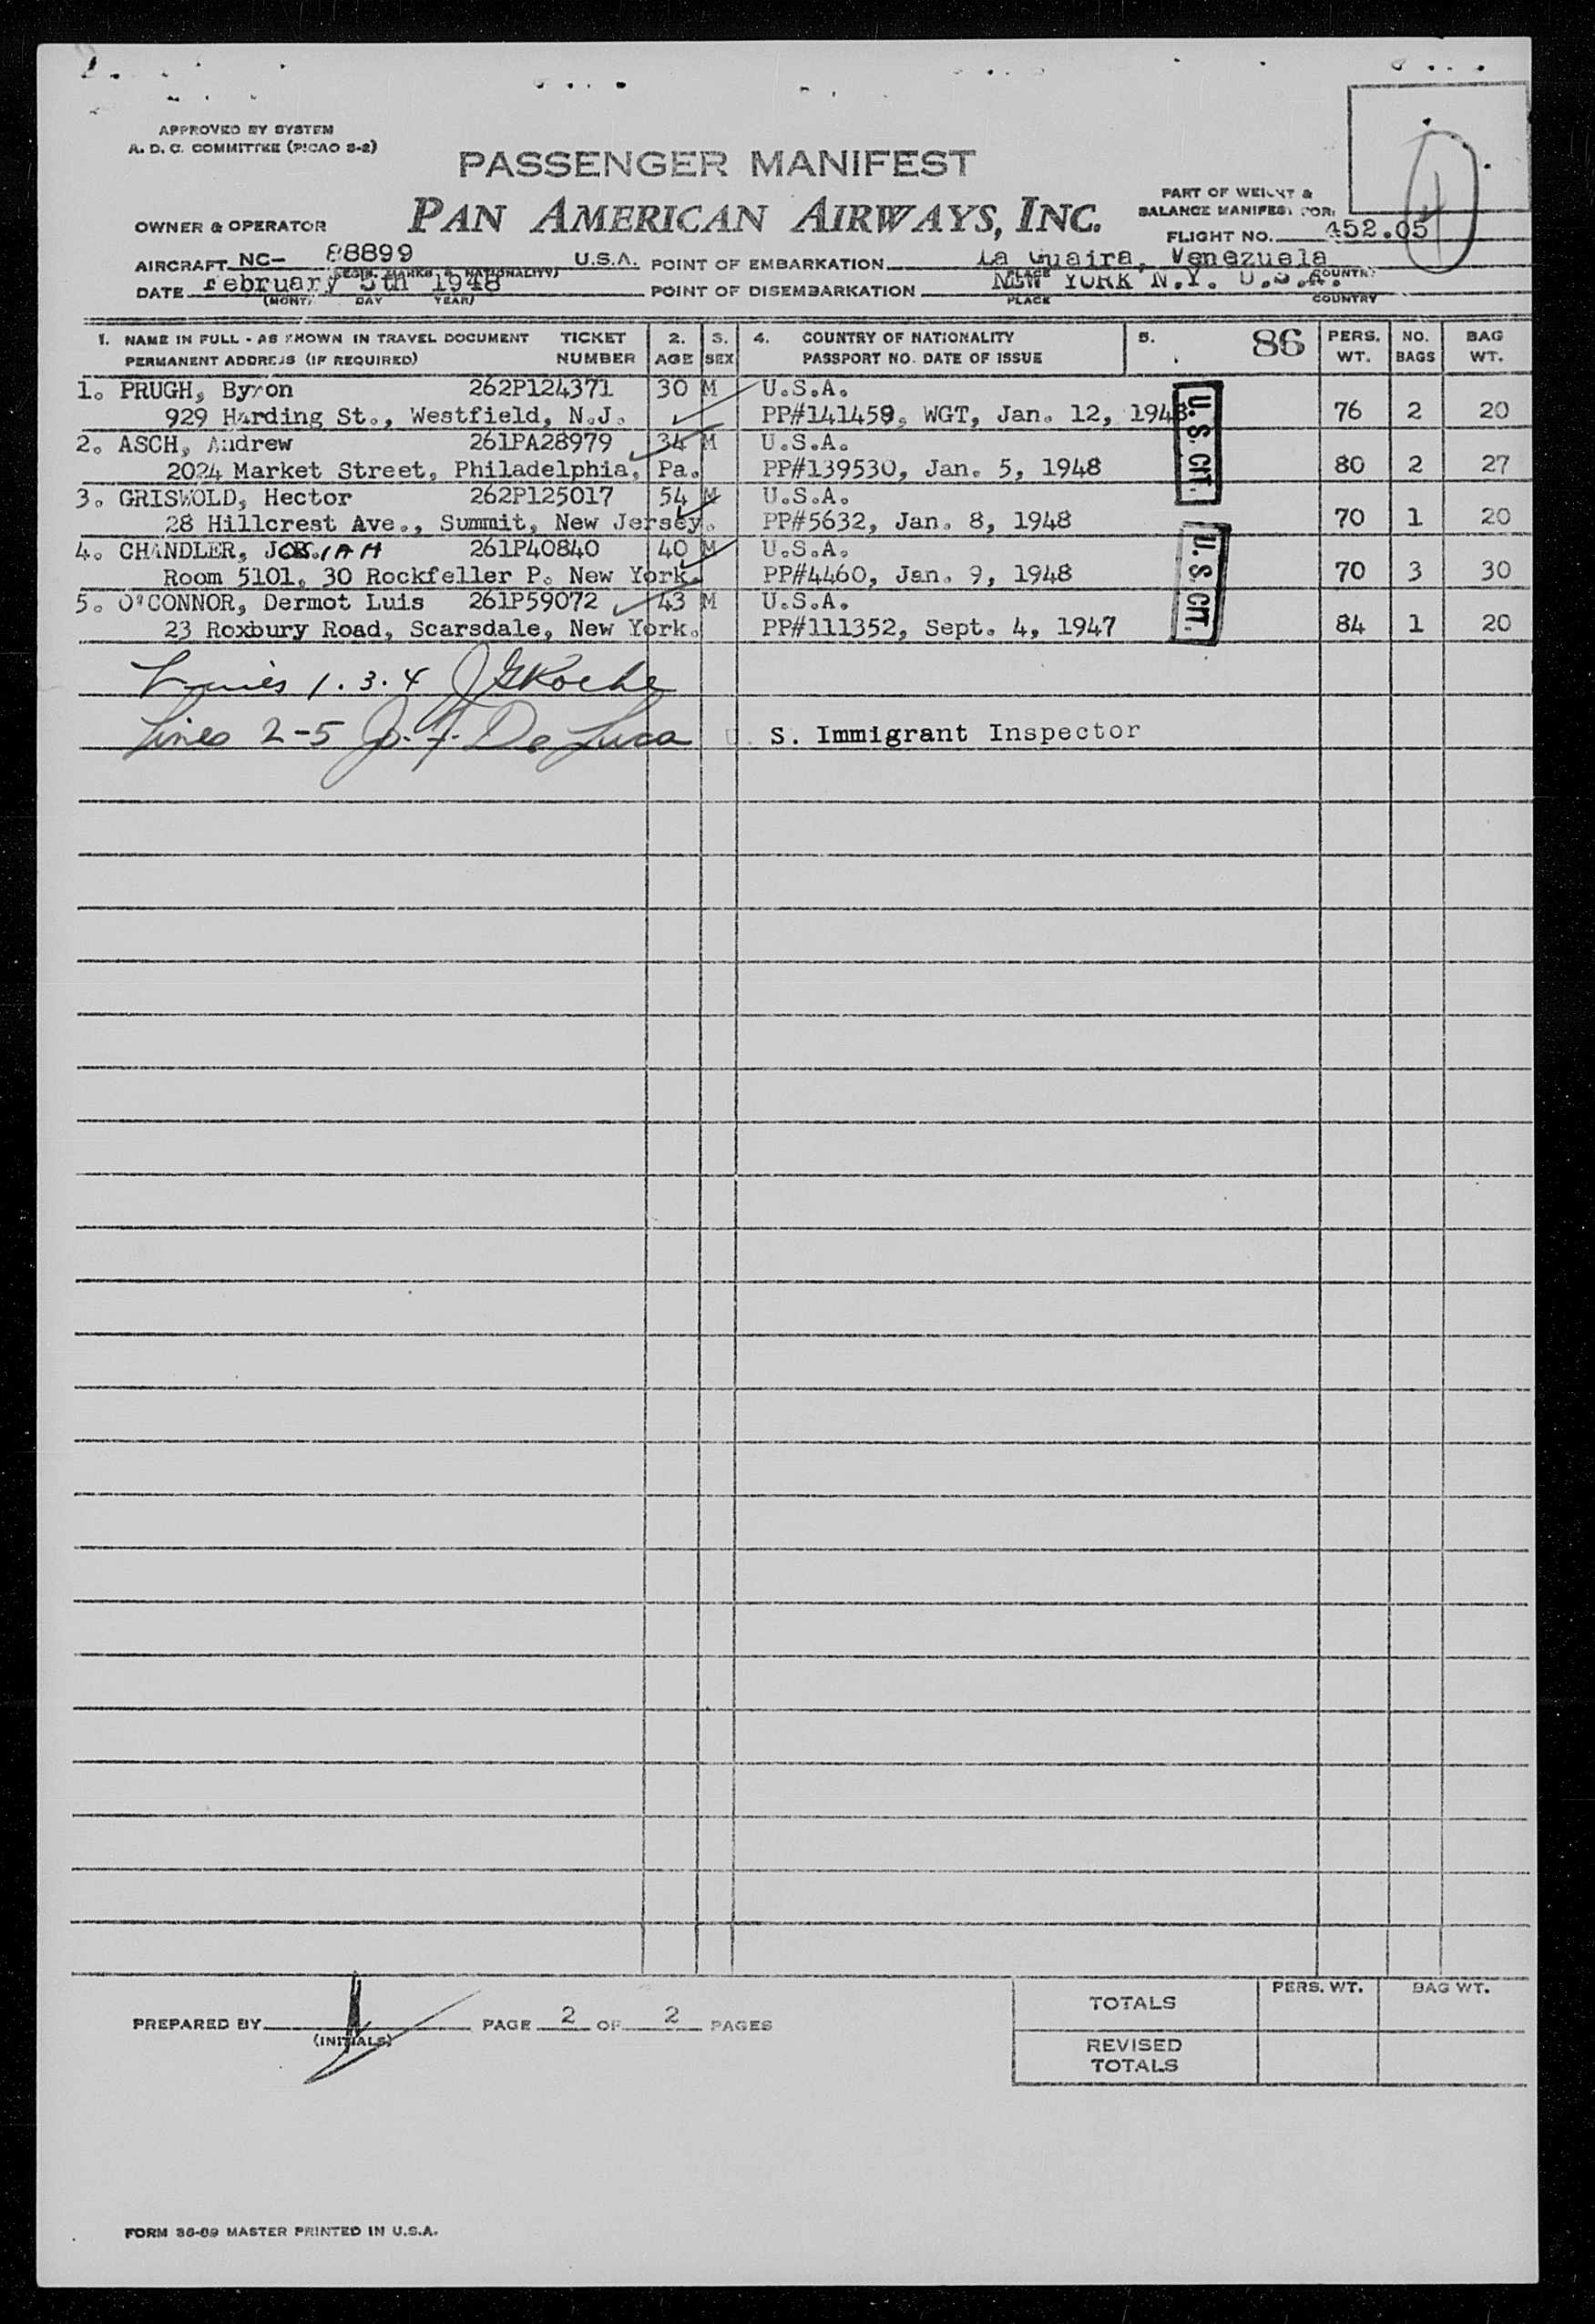 APPROVED BY SYSTEM
A. D. C. COMMITTEE (PICAO 8-2)
PASSENGER MANIFEST
PART OF WEIGHT &
BALANCE MANIFEST FOR:
OWNER & OPERATOR
PAN AMERICAN AIRWAYS, INC.
FLIGHT NO. 452.05
AIRCRAFT NC- 88899 U.S.A. POINT OF EMBARKATION La Guaira, Venezuela
(REGIS. MARKS & NATIONALITY) PLACE COUNTRY
DATE February 5th 1948 POINT OF DISEMBARKATION NEW YORK N.Y. U.S.A.
(MONTH DAY YEAR) PLACE COUNTRY
1. NAME IN FULL - AS SHOWN IN TRAVEL DOCUMENT TICKET 2. 3. 4. COUNTRY OF NATIONALITY 5. 86 PERS. NO. BAG
PERMANENT ADDRESS (IF REQUIRED) NUMBER AGE SEX PASSPORT NO. DATE OF ISSUE WT. BAGS WT.
1. PRUGH, Byron 262P124371 30 M U.S.A.
929 Harding St., Westfield, N.J. PP#141459, WGT, Jan. 12, 1948 76 2 20
2. ASCH, Andrew 261PA28979 34 M U.S.A.
2024 Market Street, Philadelphia, Pa. PP#139530, Jan. 5, 1948 80 2 27
U.S. CIT.
3. GRISWOLD, Hector 262P125017 54 M U.S.A.
28 Hillcrest Ave., Summit, New Jersey. PP#5632, Jan. 8, 1948 70 1 20
4. CHANDLER, JOSIAH 261P40840 40 M U.S.A.
Room 5101, 30 Rockfeller P. New York. PP#4460, Jan. 9, 1948 70 3 30
5. O'CONNOR, Dermot Luis 261P59072 43 M U.S.A.
23 Roxbury Road, Scarsdale, New York. PP#111352, Sept. 4, 1947 84 1 20
U.S. CIT.
Lines 1.3.4
Lines 2-5 De Luca U. S. Immigrant Inspector
PREPARED BY (INITIALS) PAGE 2 OF 2 PAGES
PERS. WT. BAG WT.
TOTALS
REVISED
TOTALS
FORM 36-89 MASTER PRINTED IN U.S.A.